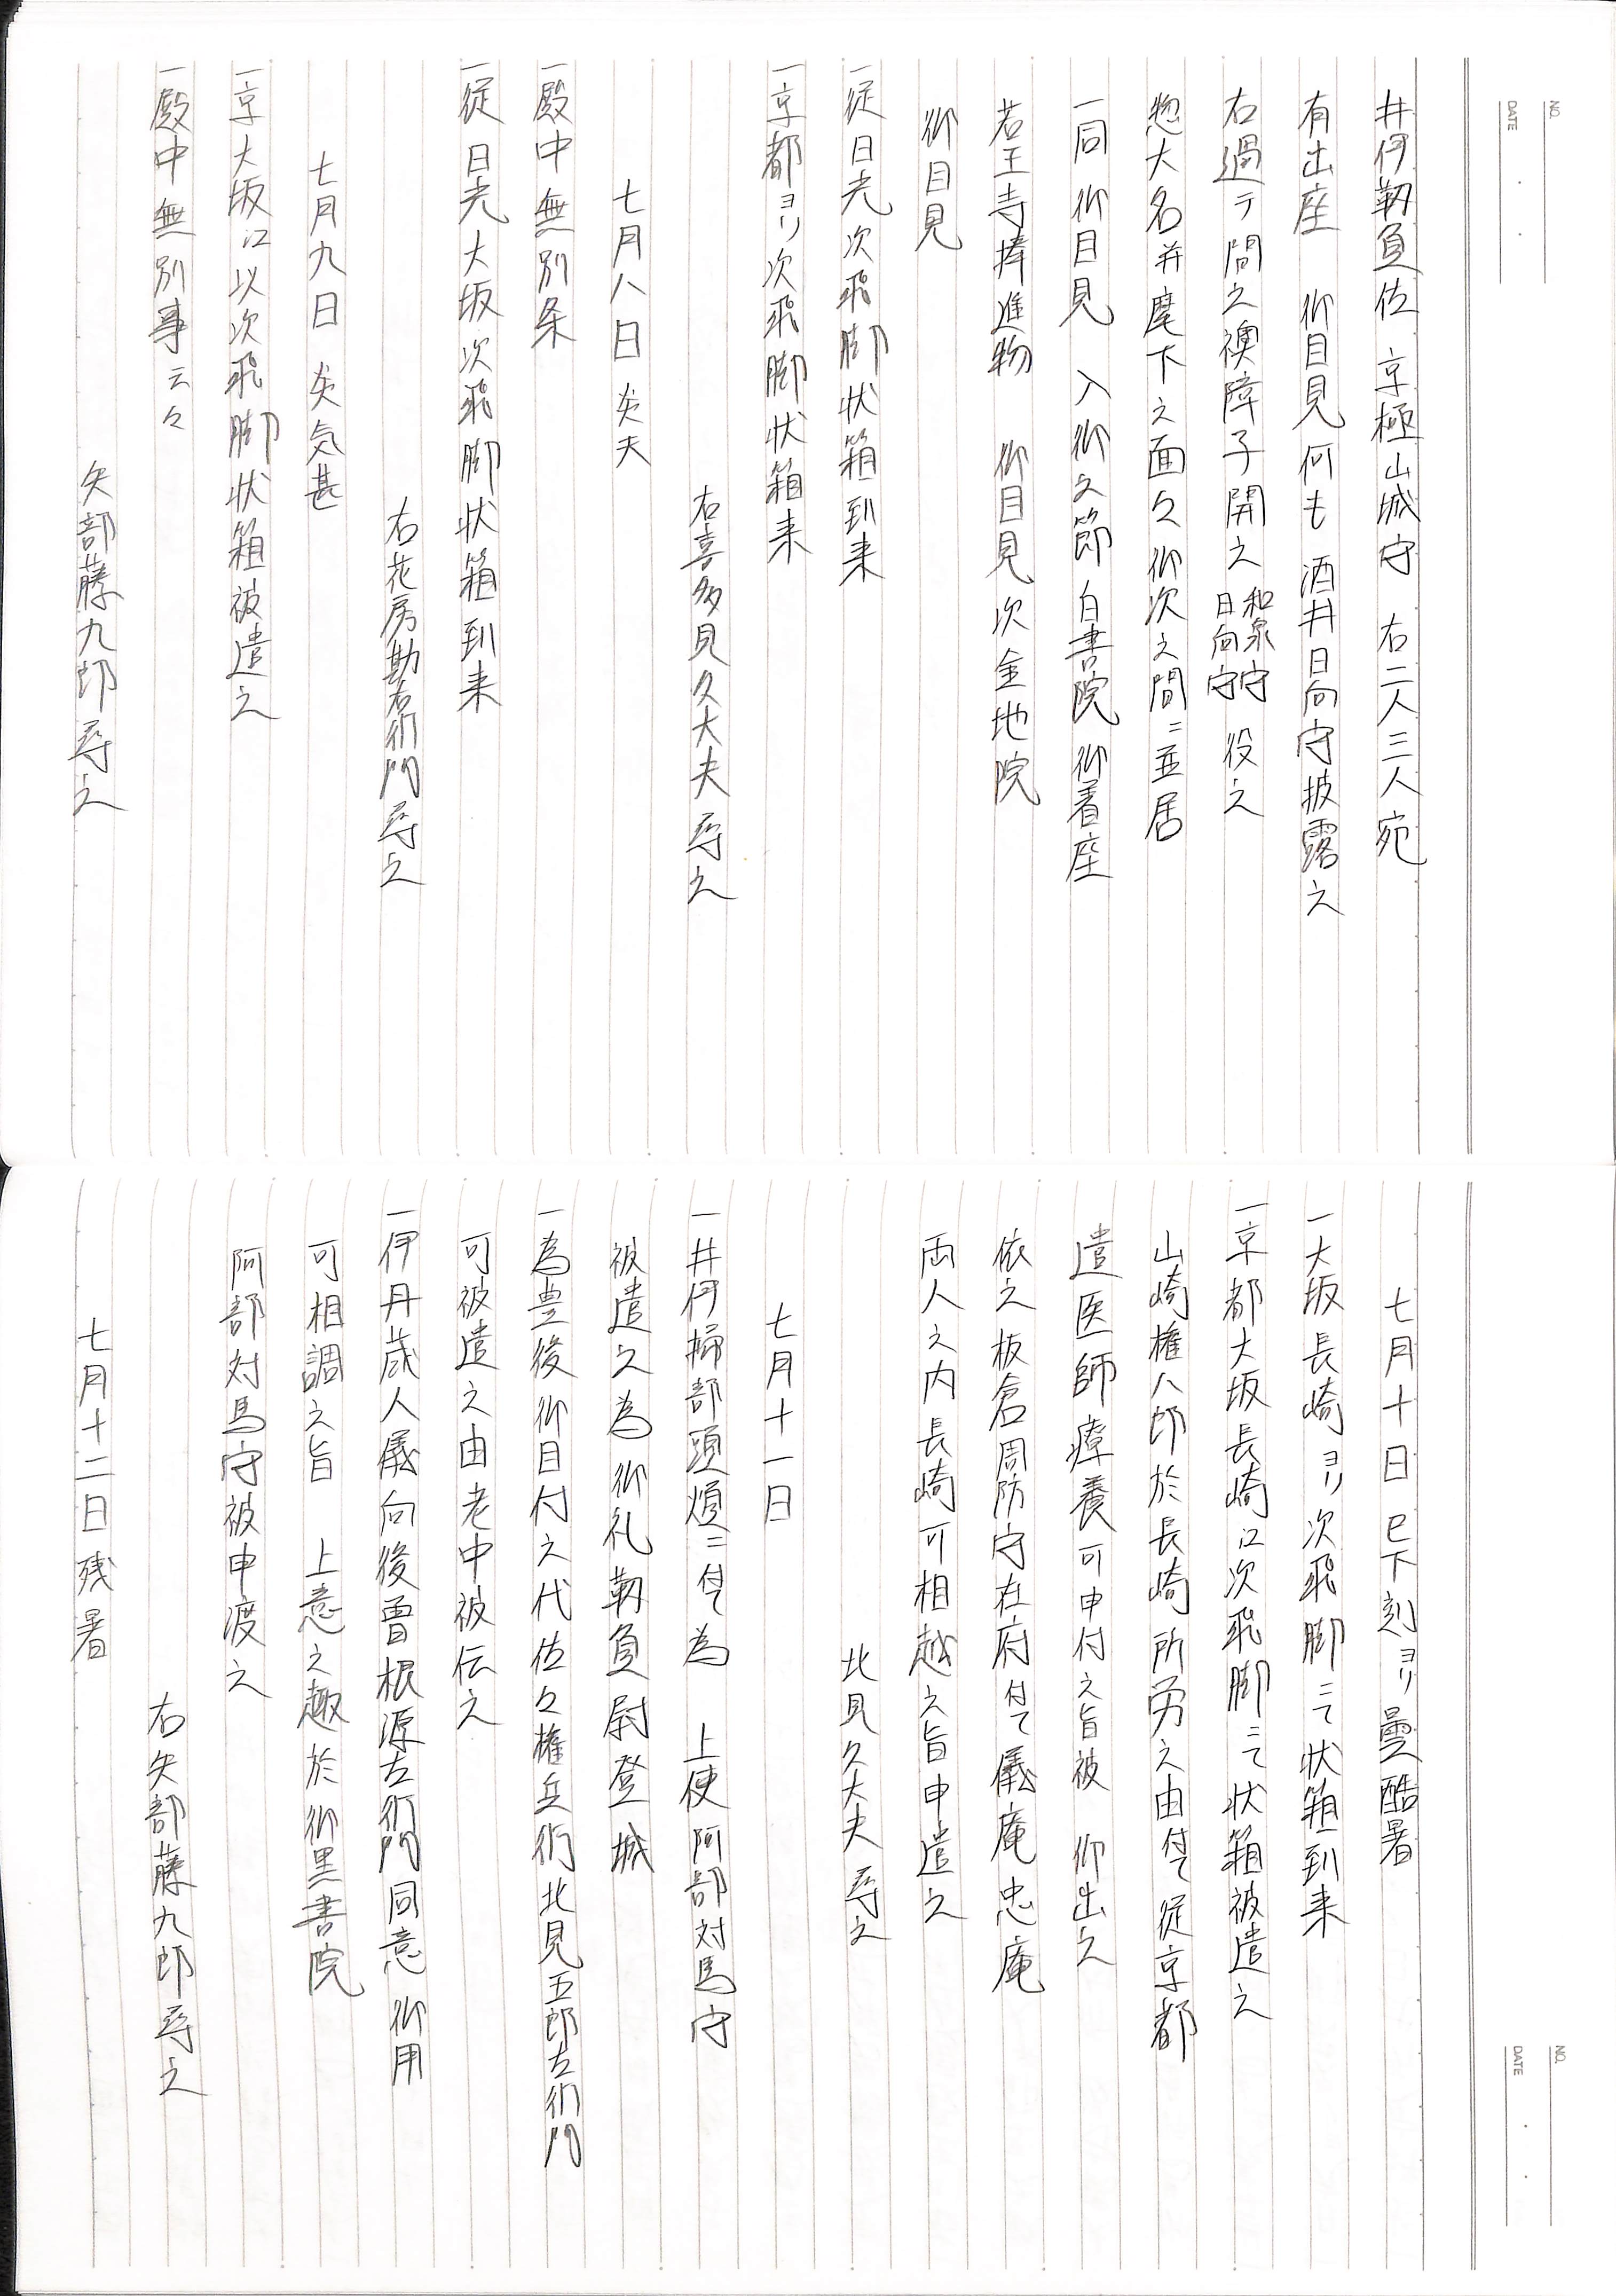 NO.
DATE
井伊靱負佐 京極山城守 右二人三人宛
有出座 御目見 何も 酒井日向守披露之
右過テ間之襖障子開之 和泉守 日向守 役之
惣大名并麾下之面々御次之間ニ並居
一同御目見 入御之節白書院御着座
若王寺捧進物 御目見次金地院
御目見
一従日光次飛脚状箱到来
一京都ヨリ次飛脚状箱来
右喜多見久大夫尋之
七月八日 炎天
一殿中無別条
一従日光大坂次飛脚状箱到来
右花房勘右衛門尋之
七月九日 炎気甚
一京大坂江以次飛脚状箱被遣之
一殿中無別事云々
矢部藤九郎尋之
NO.
DATE
七月十日 巳下刻ヨリ曇酷暑
一大坂長崎ヨリ次飛脚ニて状箱到来
一京都大坂長崎江次飛脚ニて状箱被遣之
山崎権八郎於長崎所労之由付て従京都
遣医師療養可申付之旨被 仰出之
依之板倉周防守在府付て儀庵忠庵
両人之内長崎可相越之旨申遣之
北見久大夫尋之
七月十一日
一井伊掃部頭煩ニ付て為 上使阿部対馬守
被遣之為御礼靱負尉登城
一為豊後御目付之代佐々権兵衛北見五郎左衛門
可被遣之由老中被伝之
一伊丹蔵人儀向後曽根源左衛門同意御用
可相調之旨 上意之趣於御黒書院
阿部対馬守被申渡之
右矢部藤九郎尋之
七月十二日残暑